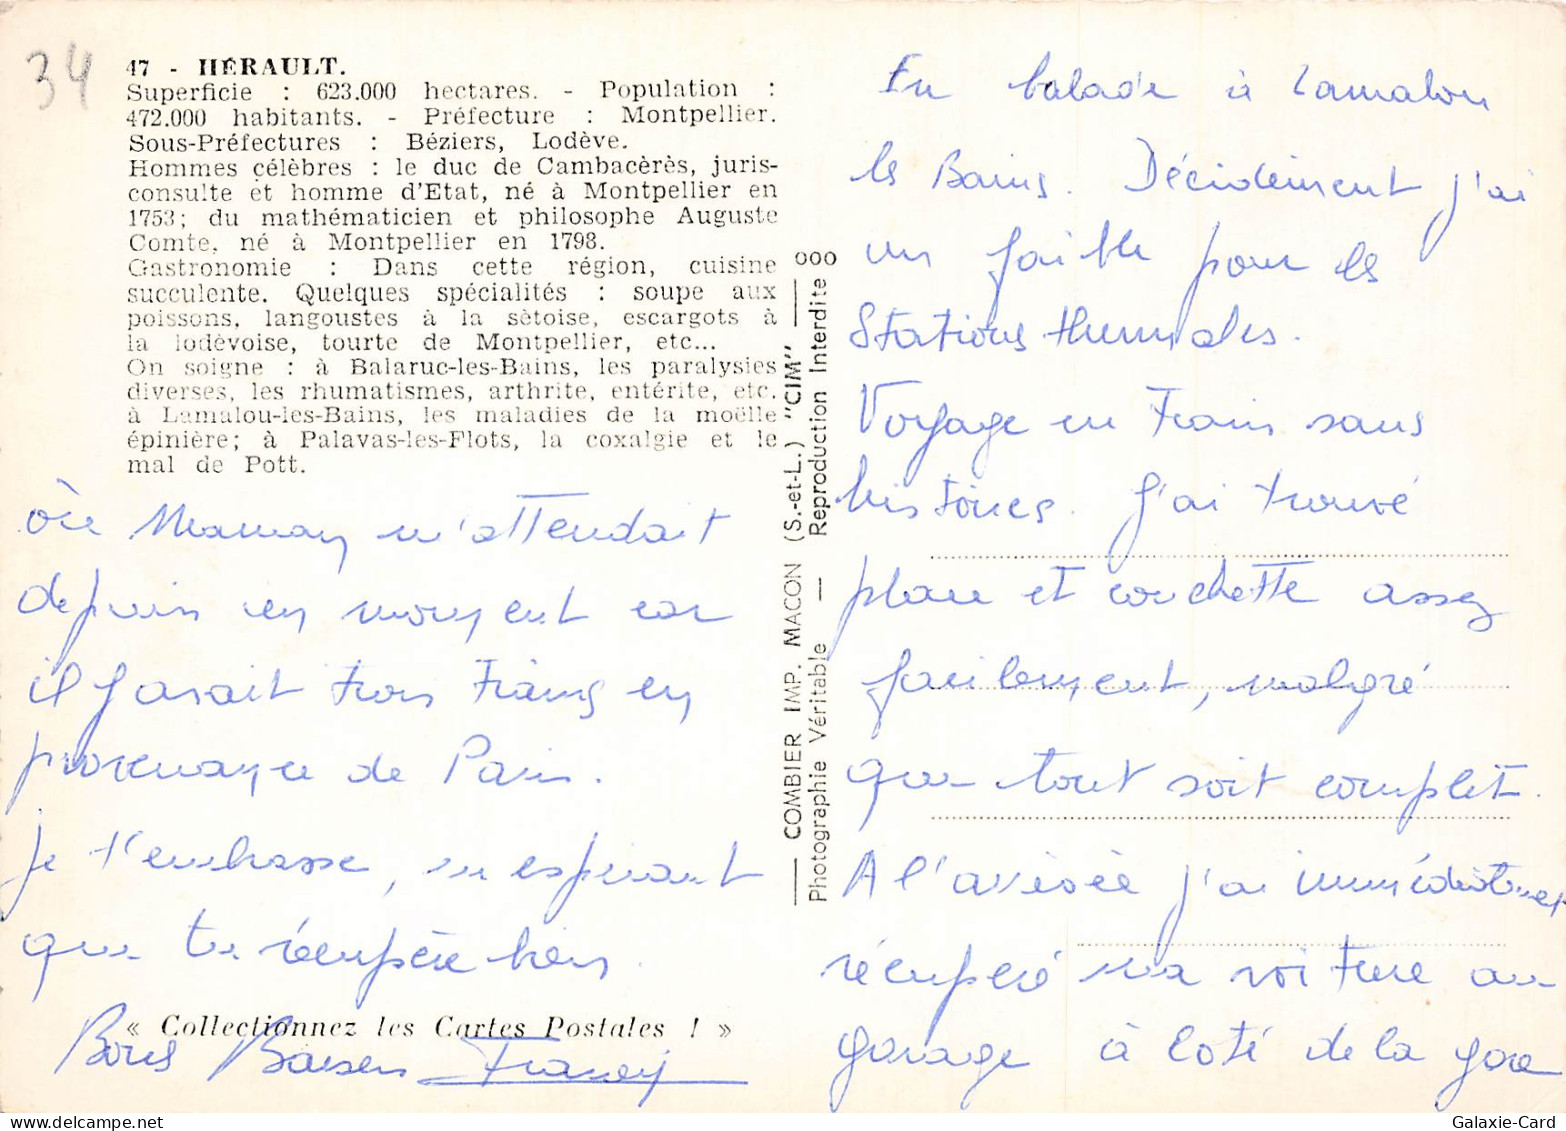 34
47 - HÉRAULT.
Superficie : 623.000 hectares. - Population :
472.000 habitants. - Préfecture : Montpellier.
Sous-Préfectures : Béziers, Lodève.
Hommes célèbres : le duc de Cambacèrès, juris-
consulte et homme d'Etat, né à Montpellier en
1753; du mathématicien et philosophe Auguste
Comte, né à Montpellier en 1798.
Gastronomie : Dans cette région, cuisine
succulente. Quelques spécialités : soupe aux
poissons, langoustes à la sètoise, escargots à
la lodévoise, tourte de Montpellier, etc...
On soigne : à Balaruc-les-Bains, les paralysies
diverses, les rhumatismes, arthrite, entérite, etc.
à Lamalou-les-Bains, les maladies de la moëlle
épinière; à Palavas-les-Flots, la coxalgie et le
mal de Pott.
COMBIER IMP. MACON (S.-et-L.) "CIM"
Photographie Véritable — Reproduction Interdite 000
En balade à Lamalou
les Bains. Décidément j'ai
un faible pour les
Stations thermales.
Voyage en train sans
histoires. J'ai trouvé
place et couchette assez
facilement, malgré
que tout soit complet.
A l'arrivée j'ai immédiatement
récupéré ma voiture au
garage à coté de la gare
où Maman m'attendait
depuis un moment car
il y avait trois trains en
provenance de Paris.
je t'embrasse, en espérant
que tu récupère bien.
Bons Baisers
« Collectionnez les Cartes Postales ! »
Galaxie-Card